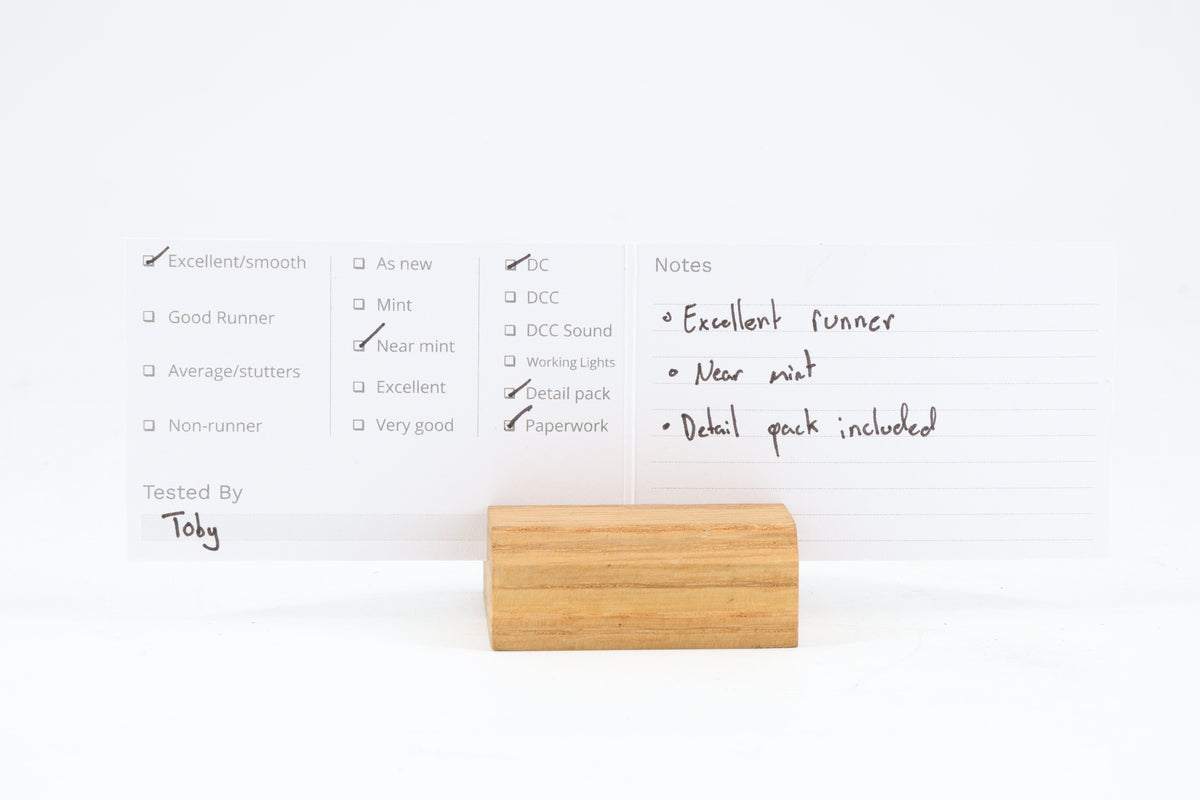 Excellent/smooth
Good Runner
Average/stutters
Non-runner
As new
Mint
Near mint
Excellent
Very good
DC
DCC
DCC Sound
Working Lights
Detail pack
Paperwork
Tested By
Toby
Notes
• Excellent runner
• Near mint
• Detail pack included